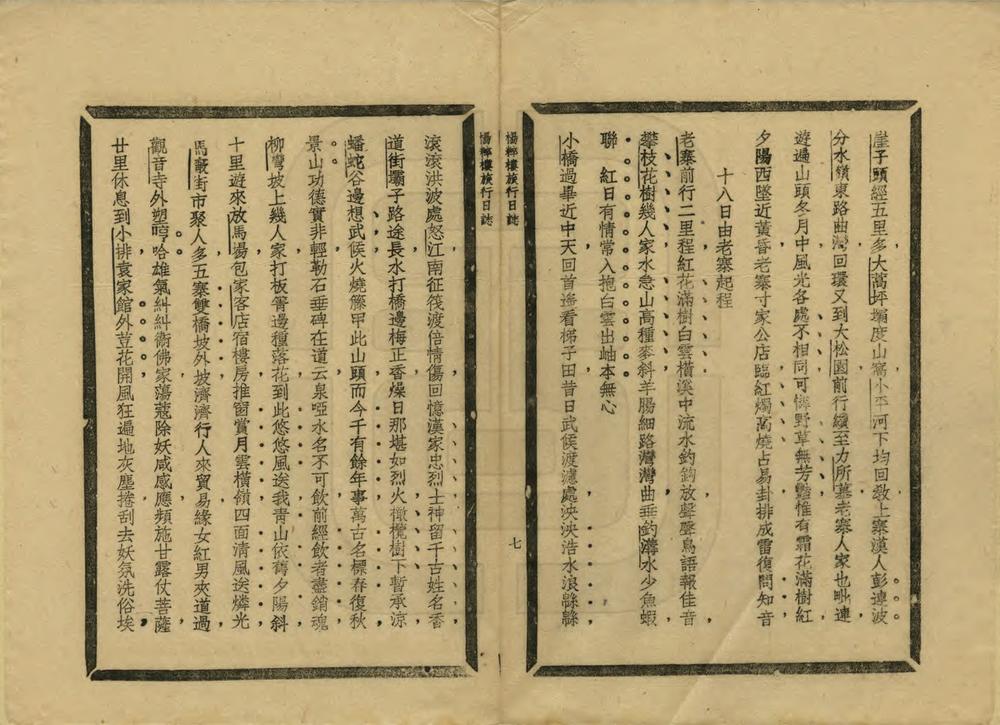 崖子頭經五里多大萵坪塲度山窩小平河下均回教上寨漢人彭連波
分水嶺東路曲灣回環又到大松園前行續至力所墓老寨人家也毗連
遊遍山頭冬月中風光各處不相同可憐野草無芳豔惟有霜花滿樹紅
夕陽西墜近黃昏老寨寸家公店臨紅燭高燒占易卦排成雷復問知音
十八日由老寨起程
老寨前行二里程紅花滿樹白雲橫溪中流水鈞鈞放聲聲鳥語報佳音
攀枝花樹幾人家水急山高種麥斜羊腸細路灣灣曲垂釣溝水少魚蝦
聯 紅日有情常入抱白雲出岫本無心
小橋過畢近中天回首遙看梯子田昔日武侯渡瀘處泱泱浩水浪緜緜
楊粹樓旅行日誌
七
楊粹樓旅行日誌
滾滾洪波處怒江南征筏渡倍情傷回憶漢家忠烈士神留千古姓名香
道街壩子路途長水打橋邊梅正香燥日那堪如烈火橄欖樹下暫承涼
蟠蛇谷邊想武侯火燒籐甲此山頭而今千有餘年事萬古名標春復秋
景山功德實非輕勒石垂碑在道云泉啞水名不可飲前經飲者盡銷魂
柳彎坡上幾人家打板箐邊種落花到此悠悠風送我青山依舊夕陽斜
十里遊來放馬塲包家客店宿樓房推窗賞月雲橫嶺四面清風送燐光
馬廠街市聚人多五寨雙橋坡外坡濟濟行人來貿易緣女紅男夾道過
觀音寺外塑哼哈雄氣糾糾衞佛家蕩蔻除妖咸感應頻施甘露仗菩薩
廿里休息到小排袁家館外荳花開風狂遍地灰塵捲刮去妖氛洗俗埃